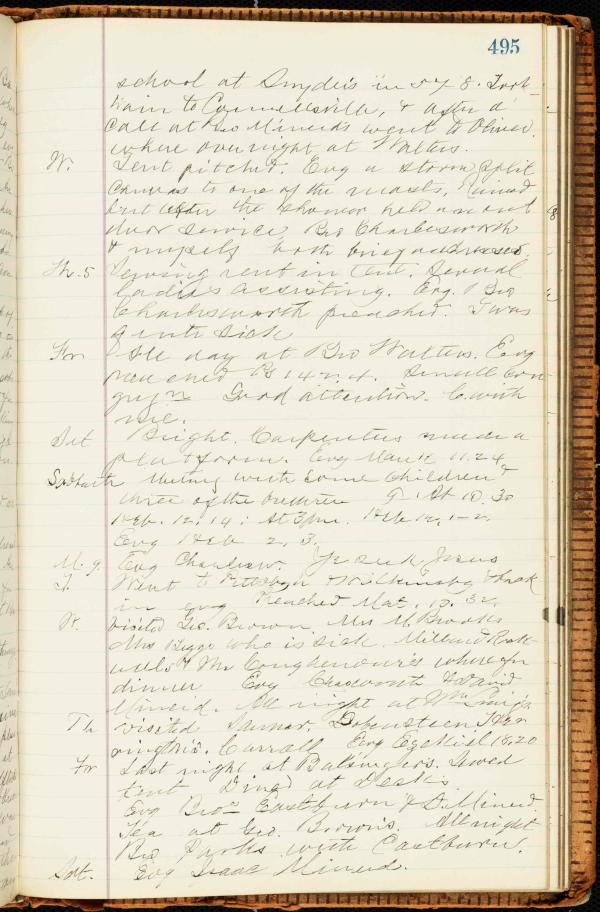 495
school at Snyder's in 5 & 8. Took
train to Connellsville, & after a
call at Bro Minerds went to Oliver
where over night at Walters.
W. Tent pitched. Evg a storm split
canvas to one of the masts, Rained
but after the shower held an out
door service Bro Charlesworth
& myself both
Th. 5 Sewing rent in tent. Several
ladies assisting. Evg. Bro
Charlesworth preached. I was
quite sick
Fri All day at Bro Walters. Evg
preached Ps 142.4. Small con
grgn Good attention. C. with
me.
Sat Bright. Carpenters made a
platform. Evg Mark 11.24
Sabbath Meeting with some children &
three of the brethren 9. At 10.30
Heb. 12, 14: At 3 pm. Heb 12, 1-2.
Evg Heb 2, 3.
M. 9 Evg Charlesw. Ye seek Jesus
T. Went to Pittsbgn & Wilkinsbg & back
in evg Preached Mat. 10. 32.
W. Visited Geo. Brown Mrs M. Brooks
Mrs Biggs who is sick. Millard Rock
wells & Mr Coughenour's where for
dinner Evg Chasworth & David
Minerd. All night at Wm
Th visited
Carroll Evg Ezekiel 18.20
Fr Last night at Balsingers. Sewed
tent Dined at Deaks
Evg Bros Eastburn & D. Minerd.
Tea at Geo. Brown's. All night
Bro Parks with Eastburn.
Sat. Evg Isaac Minerd.